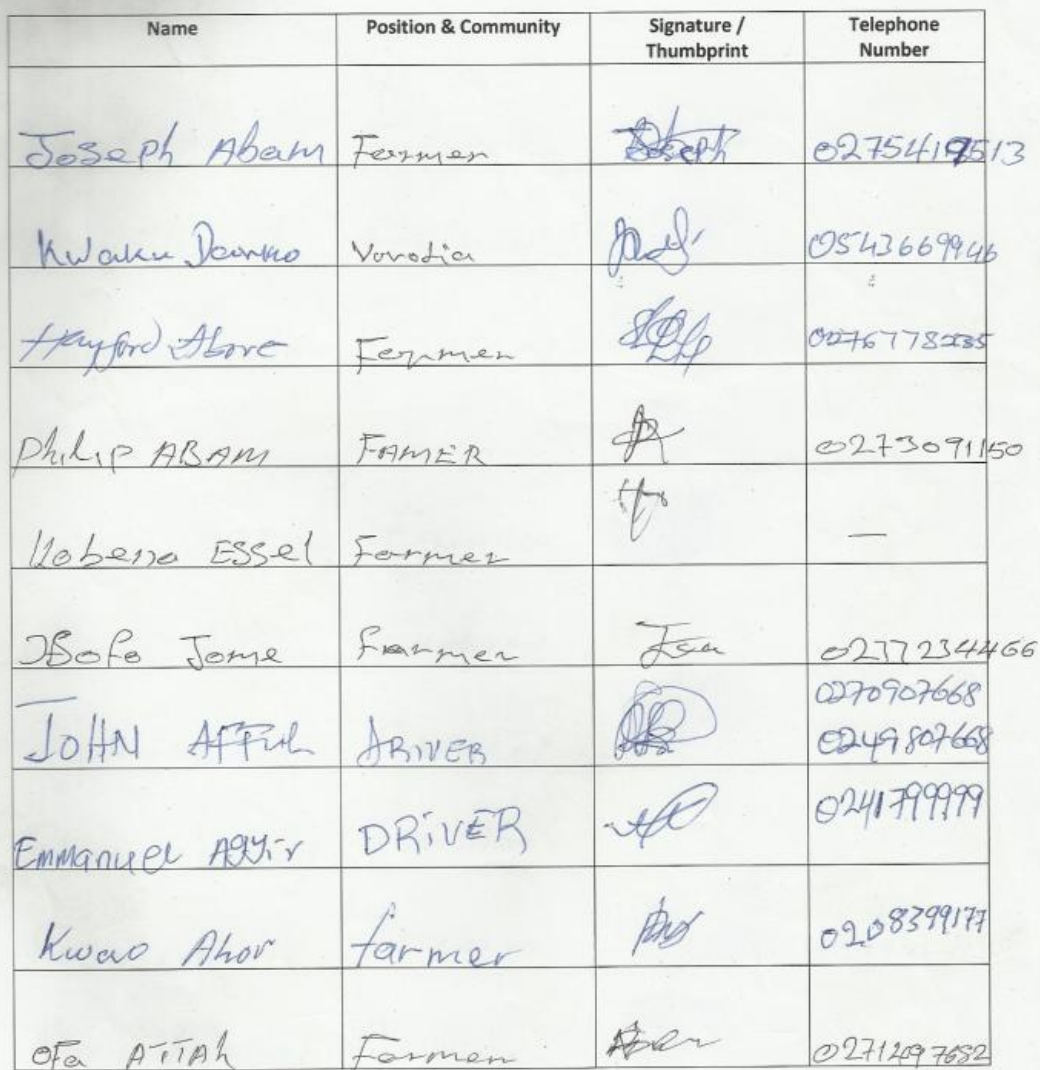 Name Position & Community Signature / Thumbprint Telephone Number
Joseph Abam Fermer Joseph
Kwaku Vorodia 0543669946
Hayford Abore Fermer
Philip ABAM FAMER 0273091150
Kobena ESSel Farmer —
Jome Frarmer 0237234466
JOHN AFFUL DRIVER 0270907668
0249807668
Emmanuel AGYir DRiVER 0241799999
Kwao Ahor farmer 0208399177
OFa ATTAh Farmer 0271297682